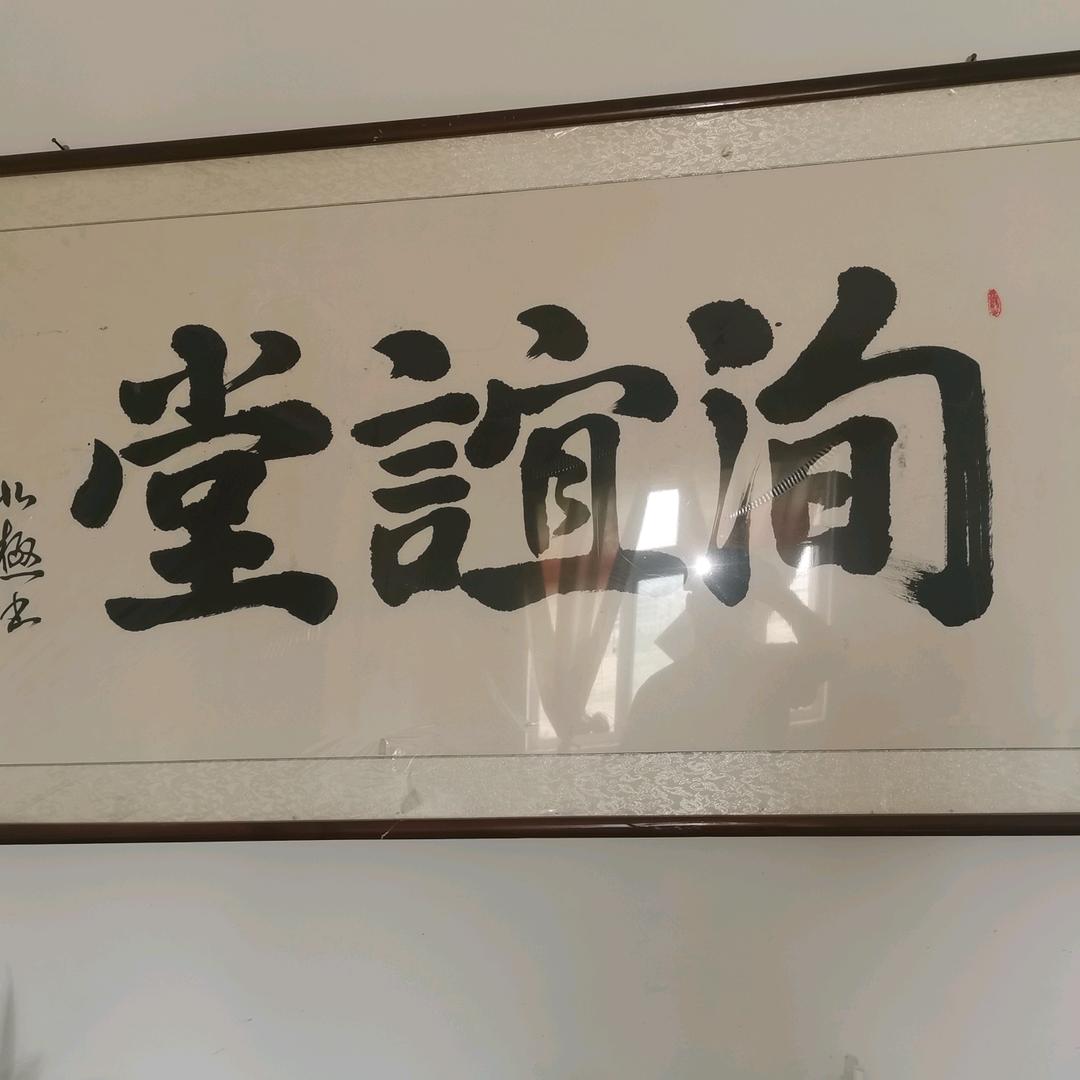 洵誼堂